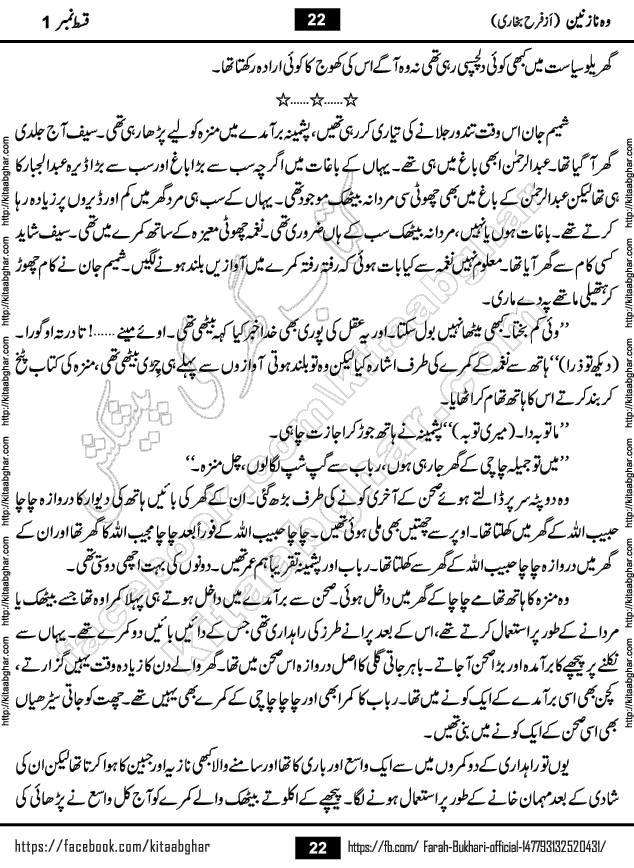 وہ نازنین (از فرح بخاری)
22
قسط نمبر 1
گھریلو سیاست میں کبھی کوئی دلچسپی رہی تھی نہ وہ آگے اس کی کھوج کا کوئی ارادہ رکھتا تھا۔
☆......☆......☆
شمیم جان اس وقت تندور جلانے کی تیاری کر رہی تھیں، پشمینہ برآمدے میں منزہ کو لیے پڑھا رہی تھی۔ سیف آج جلدی
گھر آ گیا تھا۔ عبدالرحمٰن ابھی باغ میں ہی تھے۔ یہاں کے باغات میں اگرچہ سب سے بڑا باغ اور سب سے بڑا ڈیرہ عبدالجبار کا
ہی تھا لیکن عبدالرحمٰن کے باغ میں بھی چھوٹی سی مردانہ بیٹھک موجود تھی۔ یہاں کے سب ہی مرد گھر میں کم اور ڈیروں پر زیادہ رہا
کرتے تھے۔ باغات ہوں یا نہیں، مردانہ بیٹھک سب کے ہاں ضروری تھی۔ نغمہ چھوٹی معیزہ کے ساتھ کمرے میں تھی۔ سیف شاید
کسی کام سے گھر آیا تھا۔ معلوم نہیں نغمہ سے کیا بات ہوئی کہ رفتہ رفتہ کمرے میں آوازیں بلند ہونے لگیں۔ شمیم جان نے کام چھوڑ
کر ہتھیلی ماتھے پہ دے ماری۔
”وئی کم بختا۔ کبھی میٹھا نہیں بول سکتا۔ اور یہ عقل کی پوری بھی خدا خبر کیا کہہ بیٹھی تھی۔ اوئے مینے......! تا درتہ او گورا۔
(دیکھ تو ذرا)“ ہاتھ سے نغمہ کے کمرے کی طرف اشارہ کیا لیکن وہ تو بلند ہوتی آوازوں سے پہلے ہی چڑی بیٹھی تھی، منزہ کی کتاب پٹخ
کر بند کرتے اس کا ہاتھ تھام کر اٹھایا۔
”ما توبہ دا۔ (میری توبہ)“ پشمینہ نے ہاتھ جوڑ کر اجازت چاہی۔
”میں تو جمیلہ چاچی کے گھر جا رہی ہوں، رباب سے گپ شپ لگا لوں، چل منزہ۔“
وہ دوپٹہ سر پر ڈالتے ہوئے صحن کے آخری کونے کی طرف بڑھ گئی۔ ان کے گھر کی بائیں ہاتھ کی دیوار کا دروازہ چاچا
حبیب اللہ کے گھر میں کھلتا تھا۔ اوپر سے چھتیں بھی ملی ہوئی تھیں۔ چاچا حبیب اللہ کے فوراً بعد چاچا مجیب اللہ کا گھر تھا اور ان کے
گھر میں دروازہ چاچا حبیب اللہ کے گھر سے کھلتا تھا۔ رباب اور پشمینہ تقریباً ہم عمر تھیں۔ دونوں کی بہت اچھی دوستی تھی۔
وہ منزہ کا ہاتھ تھامے چاچا کے گھر میں داخل ہوئی۔ صحن سے برآمدے میں داخل ہوتے ہی پہلا کمرا وہ تھا جسے بیٹھک یا
مردانے کے طور پر استعمال کرتے تھے، اس کے بعد پرانے طرز کی راہداری تھی جس کے دائیں بائیں دو کمرے تھے۔ یہاں سے
نکلنے پر پیچھے کا برآمدہ اور بڑا صحن آ جاتے۔ باہر جاتی گلی کا اصل دروازہ اس صحن میں تھا۔ گھر والے دن کا زیادہ وقت یہیں گزارتے،
کچن بھی اسی برآمدے کے ایک کونے میں تھا۔ رباب کا کمرا بھی اور چاچا چاچی کے کمرے بھی یہیں تھے۔ چھت کو جاتی سیڑھیاں
بھی اسی صحن کے ایک کونے میں بنی تھیں۔
یوں تو راہداری کے دو کمروں میں سے ایک واسع اور باری کا تھا اور سامنے والا کبھی نازیہ اور جبین کا ہوا کرتا تھا لیکن ان کی
شادی کے بعد مہمان خانے کے طور پر استعمال ہونے لگا۔ پیچھے کے اکلوتے بیٹھک والے کمرے کو آج کل واسع نے پڑھائی کی
http://kitaabghar.com http://kitaabghar.com http://kitaabghar.com http://kitaabghar.com http://kitaabghar.com http://kitaabghar.com
http://kitaabghar.com http://kitaabghar.com http://kitaabghar.com http://kitaabghar.com http://kitaabghar.com http://kitaabghar.com
کتاب گھر کی پیشکش
kitaabghar.com
facebook.com/kitaabghar
https://facebook.com/kitaabghar
22
https://fb.com/ Farah-Bukhari-official-147793132520431/